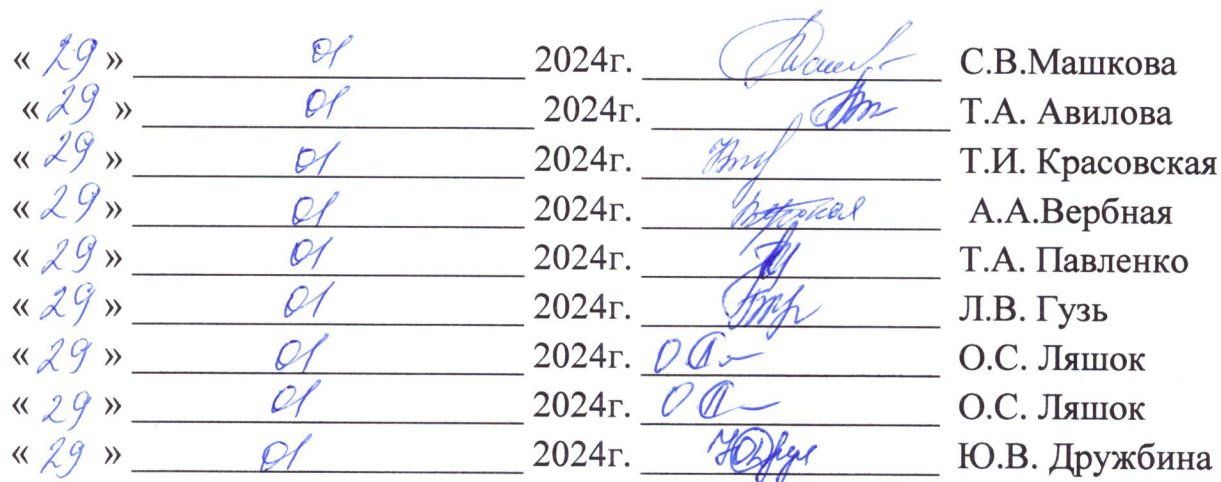 « 29 » 01 2024г. С.В.Машкова
« 29 » 01 2024г. Т.А. Авилова
« 29 » 01 2024г. Т.И. Красовская
« 29 » 01 2024г. А.А.Вербная
« 29 » 01 2024г. Т.А. Павленко
« 29 » 01 2024г. Л.В. Гузь
« 29 » 01 2024г. О.С. Ляшок
« 29 » 01 2024г. О.С. Ляшок
« 29 » 01 2024г. Ю.В. Дружбина